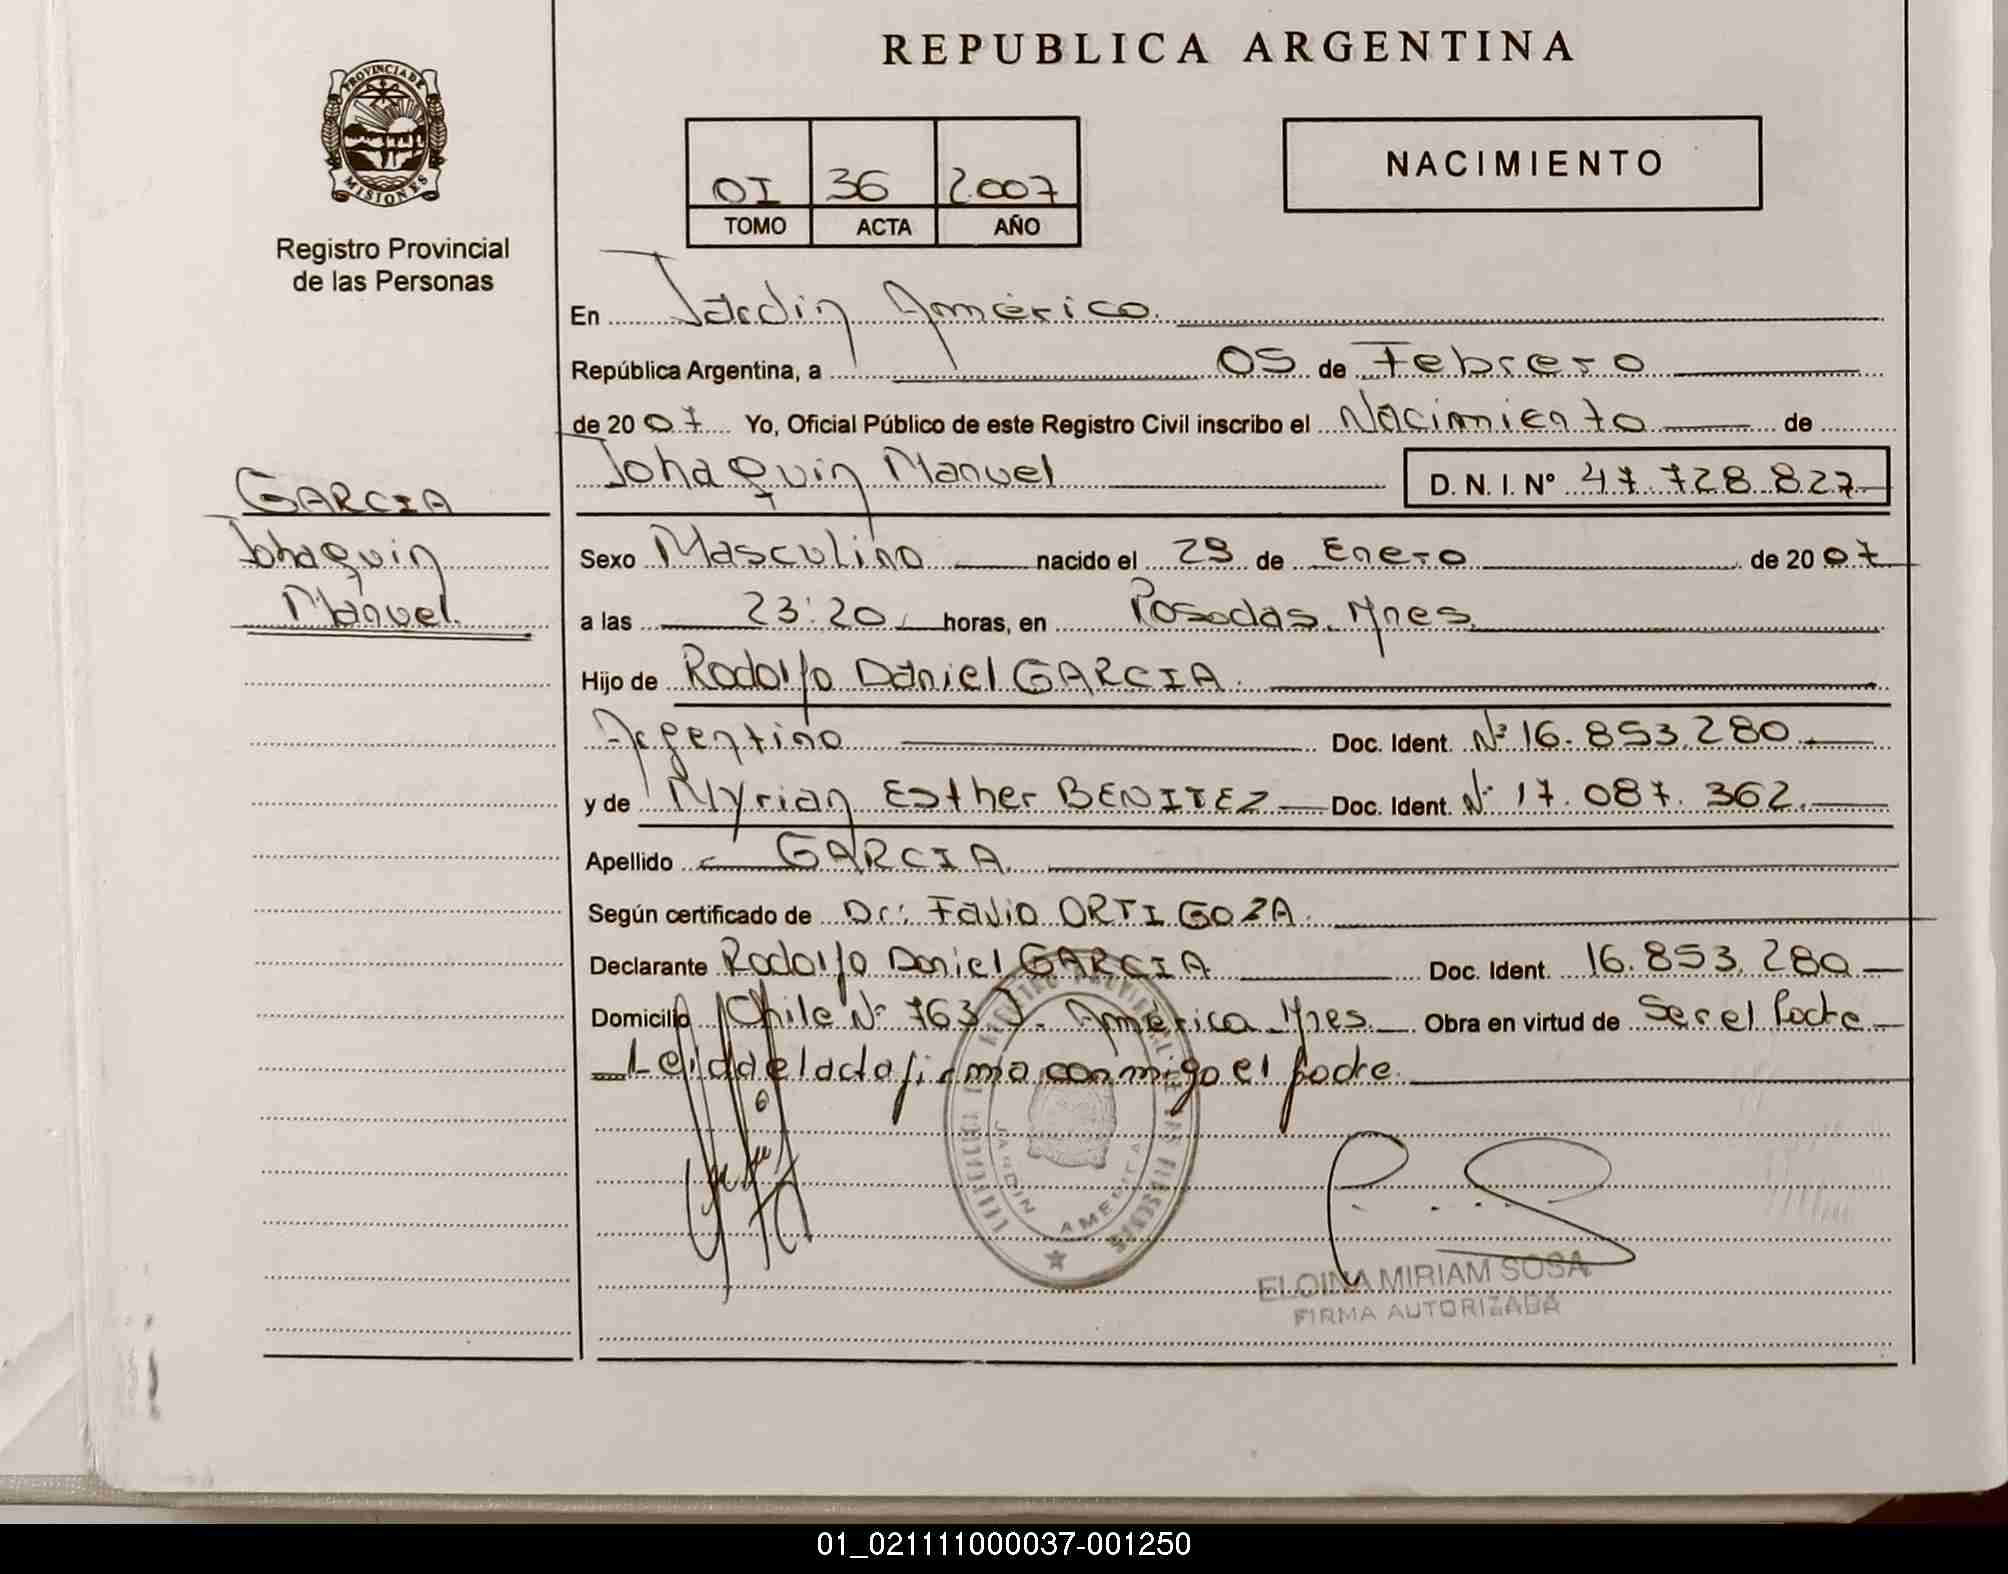 REPUBLICA ARGENTINA
PROVINCIA DE
MISIONES
Registro Provincial
de las Personas
OI 36 2007
TOMO ACTA AÑO
NACIMIENTO
En Jardin América
República Argentina, a 05 de Febrero
de 2007 Yo, Oficial Público de este Registro Civil inscribo el Nacimiento de
Johaquin Manuel D. N. I. Nº 47.728.827
GARCIA
Johaquin
Manuel
Sexo Masculino nacido el 29 de Enero de 2007
a las 23:20 horas, en Posadas. Mnes.
Hijo de Rodolfo Daniel GARCIA.
Argentino Doc. Ident. Nº 16.853.280
y de Myrian Esther BENITEZ Doc. Ident. Nº 17.087.362.
Apellido GARCIA.
Según certificado de Dr: Favio ORTIGOZA.
Declarante Rodolfo Daniel GARCIA Doc. Ident. 16.853.280
Domicilio Chile Nº 763 J. América Mnes. Obra en virtud de Ser el Padre
Leida el acta firma conmigo el padre.
JARDIN AMERICA
ELOINA MIRIAM SOSA
FIRMA AUTORIZADA
01_021111000037-001250